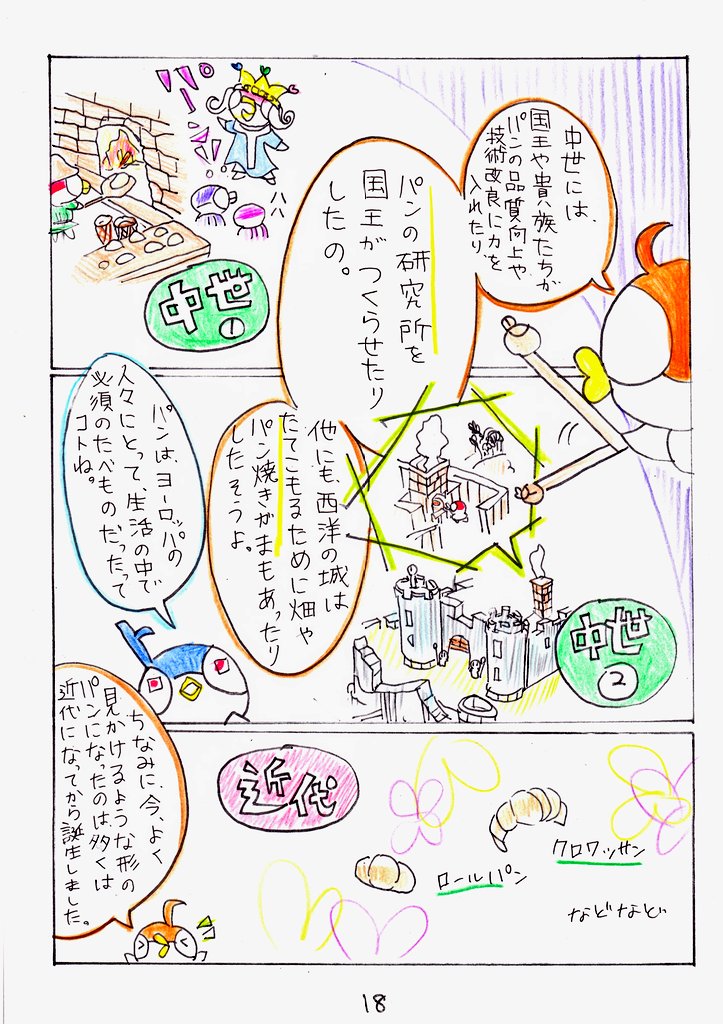 中世には、
国王や貴族たちが
パンの品質向上や
技術改良に力を
入れたり、
パンの研究所を
国王がつくらせたり
したの。
パン!
ハハ
中世
①
他にも、西洋の城は
たてこもるために畑や
パン焼きがまもあったり
したそうよ。
パンは、ヨーロッパの
人々にとって、生活の中で
必須のたべものだったって
コトね。
中世
②
近代
ちなみに、今、よく
見かけるような形の
パンになったのは、多くは
近代になってから誕生しました。
クロワッサン
ロールパン
などなど
18